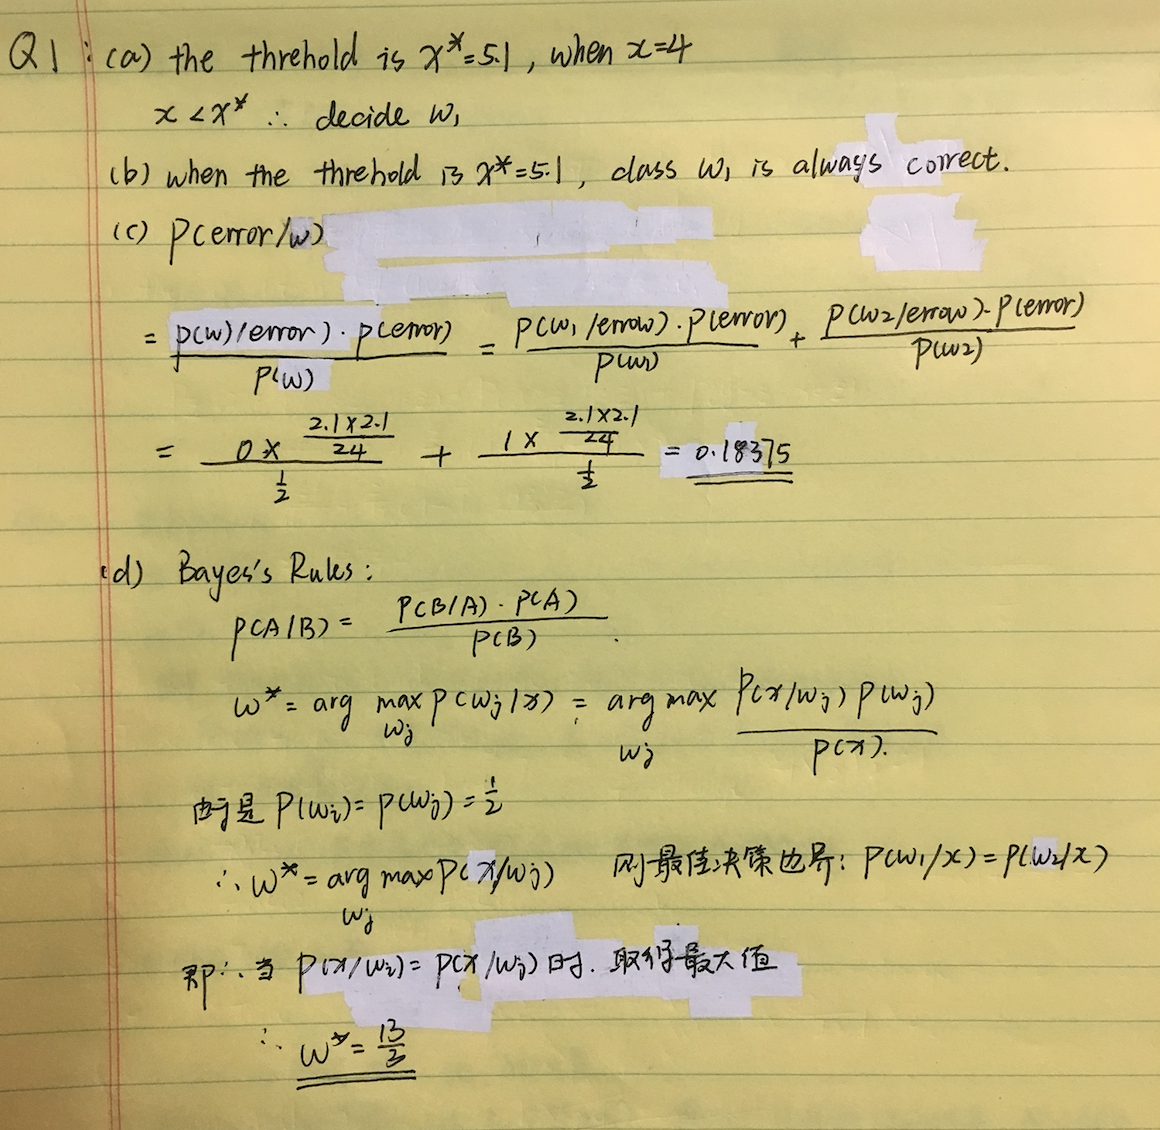 Q1: (a) the threhold is x*=5.1, when x=4
x<x* ∴ decide w₁
(b) when the threhold is x*=5.1, class w₁ is always correct.
(c) P(error/w)
= P(w)/error)·P(error) / P(w) = P(w₁/errow)·P(error) / P(w₁) + P(w₂/errow)·P(error) / P(w₂)
= 0× 2.1×2.1/24 / ½ + 1× 2.1×2.1/24 / ½ = 0.18375
(d) Bayes's Rules:
P(A/B)= P(B/A)·P(A) / P(B).
w*= arg max wj P(wj/x) = arg max wj P(x/wj) P(wj) / P(x).
由于是 P(wi)=P(wj)=½
∴ w*= arg max wj P(x/wj) 则最佳决策边界: P(w₁/x)=P(w₂/x)
即∴当 P(x/wi)=P(x/wj)时. 取得最大值
∴ w*= 13/3